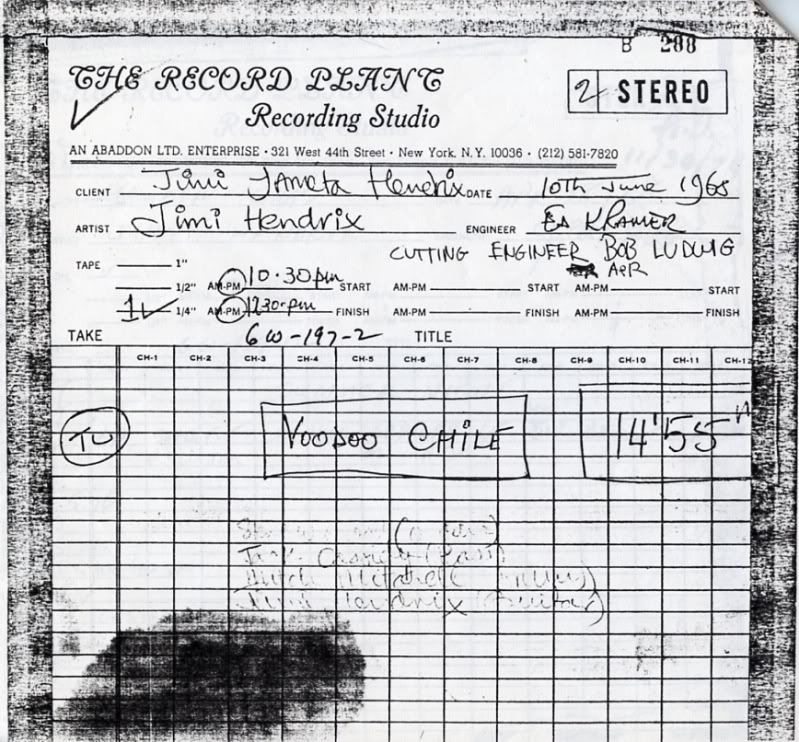 B 288
THE RECORD PLANT
Recording Studio
2 STEREO
AN ABADDON LTD. ENTERPRISE • 321 West 44th Street • New York, N.Y. 10036 • (212) 581-7820
CLIENT Jimi Hendrix DATE 10TH June 1968
ARTIST Jimi Hendrix ENGINEER Ed KRAMER
CUTTING ENGINEER BOB LUDWIG
A&R
TAPE 1"
1/2" AM-PM 10.30pm START AM-PM START AM-PM START
1 1/4" AM-PM 1230-pm FINISH AM-PM FINISH AM-PM FINISH
TAKE 6W-197-2 TITLE
CH-1 CH-2 CH-3 CH-4 CH-5 CH-6 CH-7 CH-8 CH-9 CH-10 CH-11 CH-12
TU VOODOO CHILE 14'55"
Mitch Mitchell
Jimi Hendrix (Guitar)